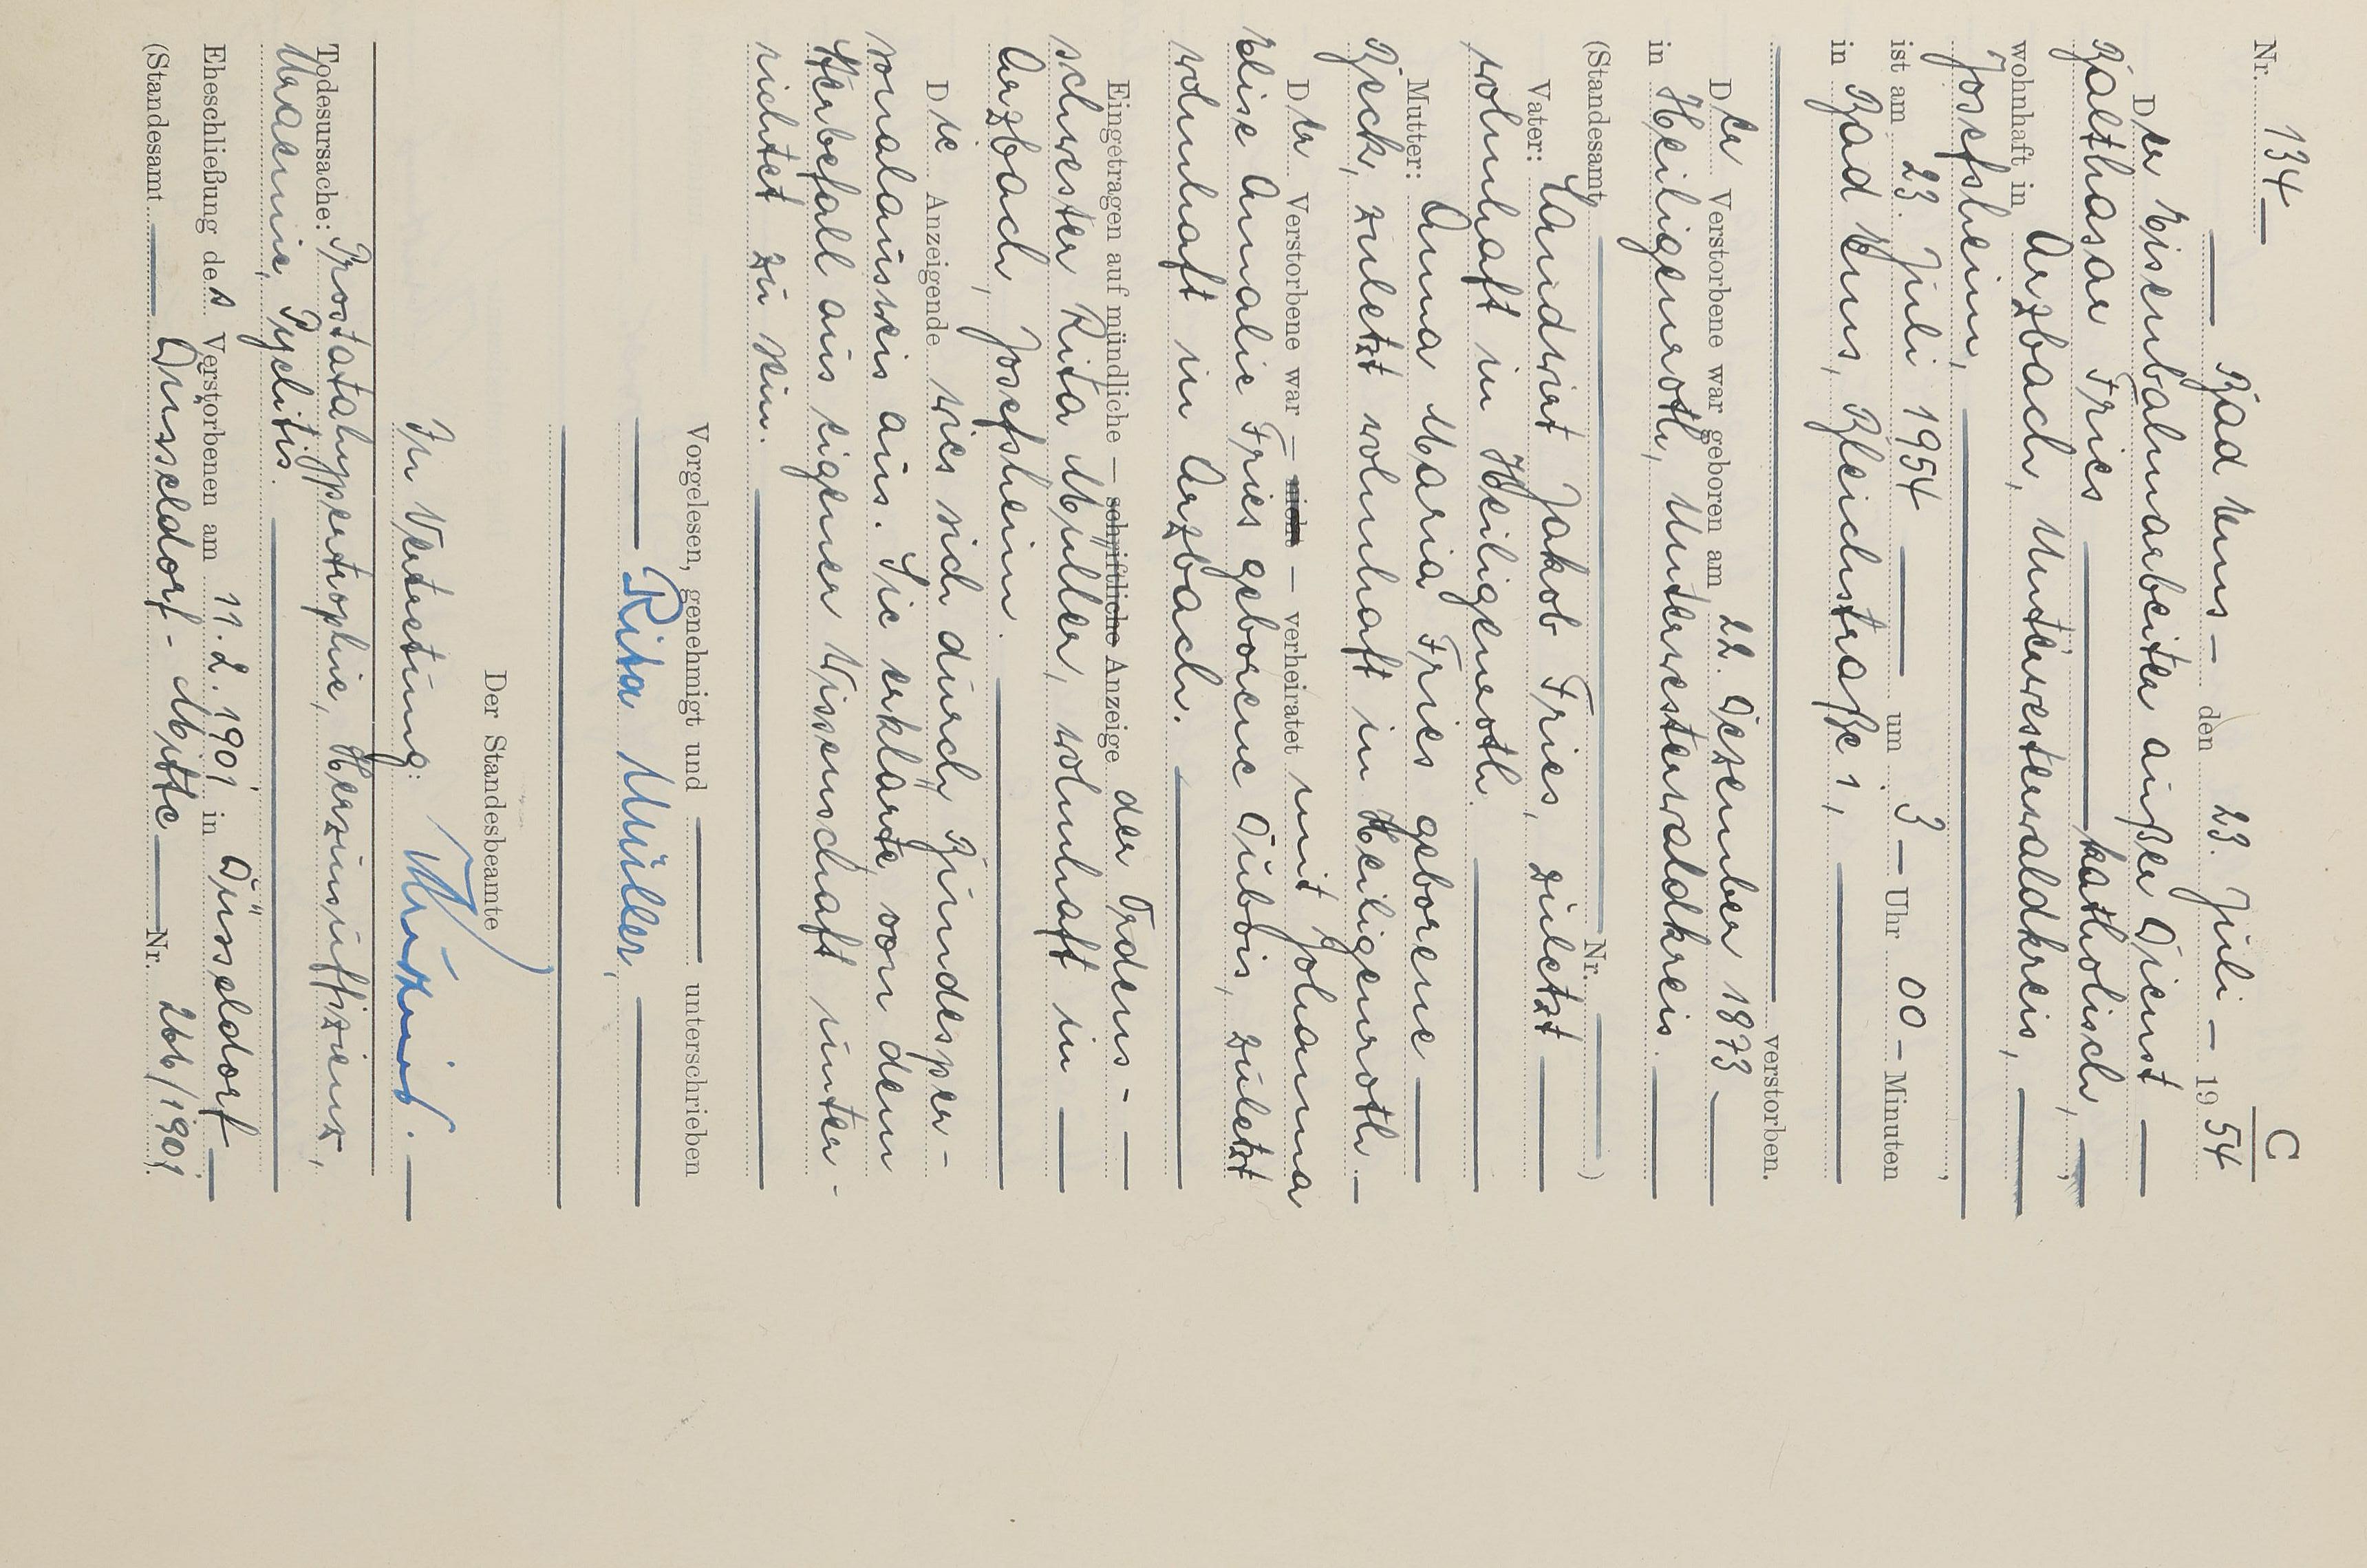 C
Nr. 134
Bad Ems – den 23. Juli – 19 54
Der Eisenbahnarbeiter außer Dienst
Balthasar Fries katholisch,
wohnhaft in Arzbach, Unterwesterwaldkreis,
Josefsheim,
ist am 23. Juli 1954 um 3 – Uhr 00 – Minuten
in Bad Ems, Bleichstraße 1,
verstorben.
Der Verstorbene war geboren am 22. Dezember 1873
in Heiligenroth, Unterwesterwaldkreis.
(Standesamt Nr. )
Vater: Landwirt Jakob Fries, zuletzt
wohnhaft in Heiligenroth.
Mutter: Anna Maria Fries geborene
Beck, zuletzt wohnhaft in Heiligenroth.
Der Verstorbene war – nicht – verheiratet mit Johanna
Elise Amalie Fries geborene Dubois, zuletzt
wohnhaft in Arzbach.
Eingetragen auf mündliche – schriftliche Anzeige der Ordens-
schwester Rita Müller, wohnhaft in
Arzbach, Josefsheim.
Die Anzeigende wies sich durch Bundesper-
sonalausweis aus. Sie erklärte, von dem
Sterbefall aus eigener Wissenschaft unter-
richtet zu sein.
Vorgelesen, genehmigt und unterschrieben
Rita Müller,
Der Standesbeamte
In Vertretung:
Todesursache: Prostatahypertrophie, Herzinsuffizienz,
Uraemie, Pyelitis.
Eheschließung des Verstorbenen am 11.2.1901 in Düsseldorf
(Standesamt Düsseldorf-Mitte Nr. 266/1901)